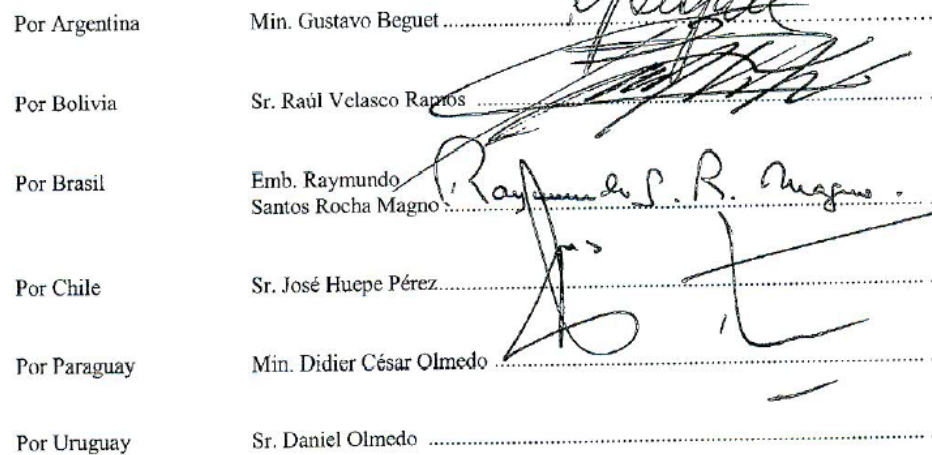 Por Argentina Min. Gustavo Beguet ..........
Por Bolivia Sr. Raúl Velasco Ramos ..........
Raymundo S. R. Magno.
Por Brasil Emb. Raymundo
Santos Rocha Magno ..........
Por Chile Sr. José Huepe Pérez ..........
Por Paraguay Min. Didier César Olmedo ..........
Por Uruguay Sr. Daniel Olmedo ..........